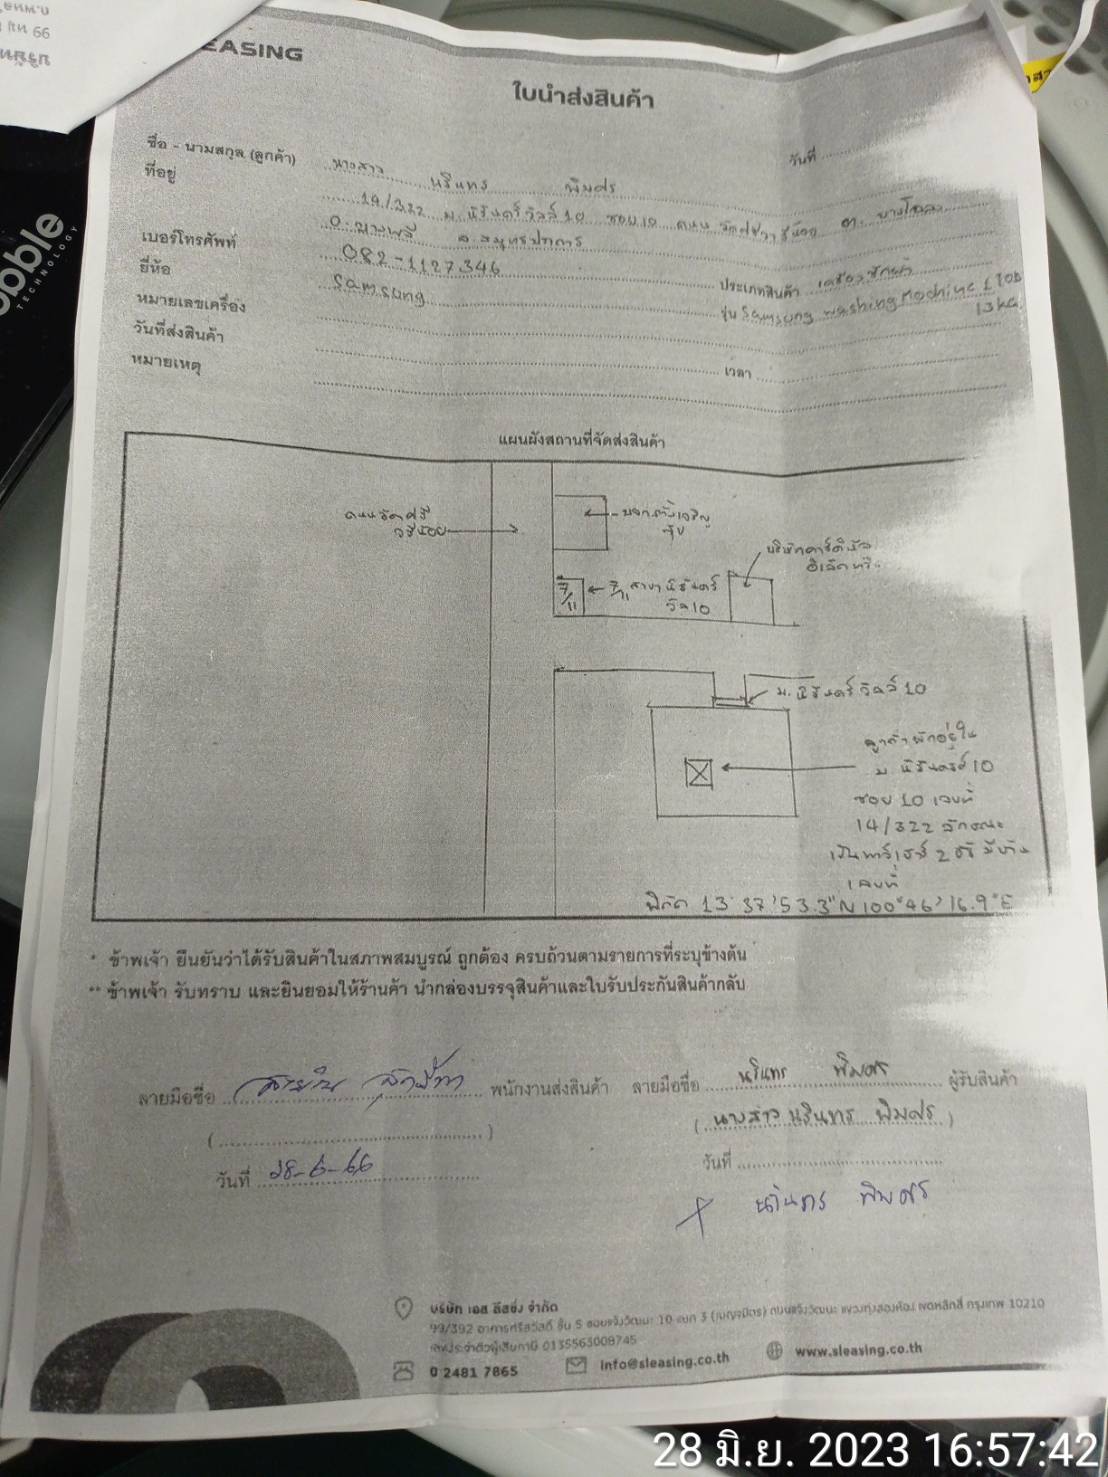 LEASING
ใบนำส่งสินค้า
วันที่
ชื่อ - นามสกุล (ลูกค้า) นางสาว นรินทร พิมศร
ที่อยู่ 14/322 ม. นิรันดร์วิลล์ 10 ซอย 10 ถนน ต. บางโฉลง
อ. บางพลี จ. สมุทรปราการ
เบอร์โทรศัพท์ 082-1127346 ประเภทสินค้า เครื่องซักผ้า
ยี่ห้อ Samsung รุ่น Samsung washing Machine 13 kg.
หมายเลขเครื่อง
วันที่ส่งสินค้า เวลา
หมายเหตุ
แผนผังสถานที่จัดส่งสินค้า
7/11
7/11 สาขา นิรันดร์วิล 10
ม. นิรันดร์ วิลล์ 10
ลูกค้าพักอยู่ใน
ม. นิรันดร์ 10
ซอย 10 เลขที่
14/322 ลักษณะ
เลขที่
พิกัด 13°37'53.3"N 100°46'16.9"E
* ข้าพเจ้า ยืนยันว่าได้รับสินค้าในสภาพสมบูรณ์ ถูกต้อง ครบถ้วนตามรายการที่ระบุข้างต้น
** ข้าพเจ้า รับทราบ และยินยอมให้ร้านค้า นำกล่องบรรจุสินค้าและใบรับประกันสินค้ากลับ
ลายมือชื่อ พนักงานส่งสินค้า ลายมือชื่อ นรินทร พิมศร ผู้รับสินค้า
(นางสาว นรินทร พิมศร)
วันที่ 28-6-66 วันที่
นรินทร พิมศร
บริษัท เอส ลีสซิ่ง จำกัด
99/392 อาคารศรีสวัสดิ์ ชั้น 5 ซอยแจ้งวัฒนะ 10 แยก 3 (เบญจมิตร) ถนนแจ้งวัฒนะ แขวงทุ่งสองห้อง เขตหลักสี่ กรุงเทพ 10210
เลขประจำตัวผู้เสียภาษี 0135563009745
0 2481 7865 info@sleasing.co.th www.sleasing.co.th
28 มิ.ย. 2023 16:57:42